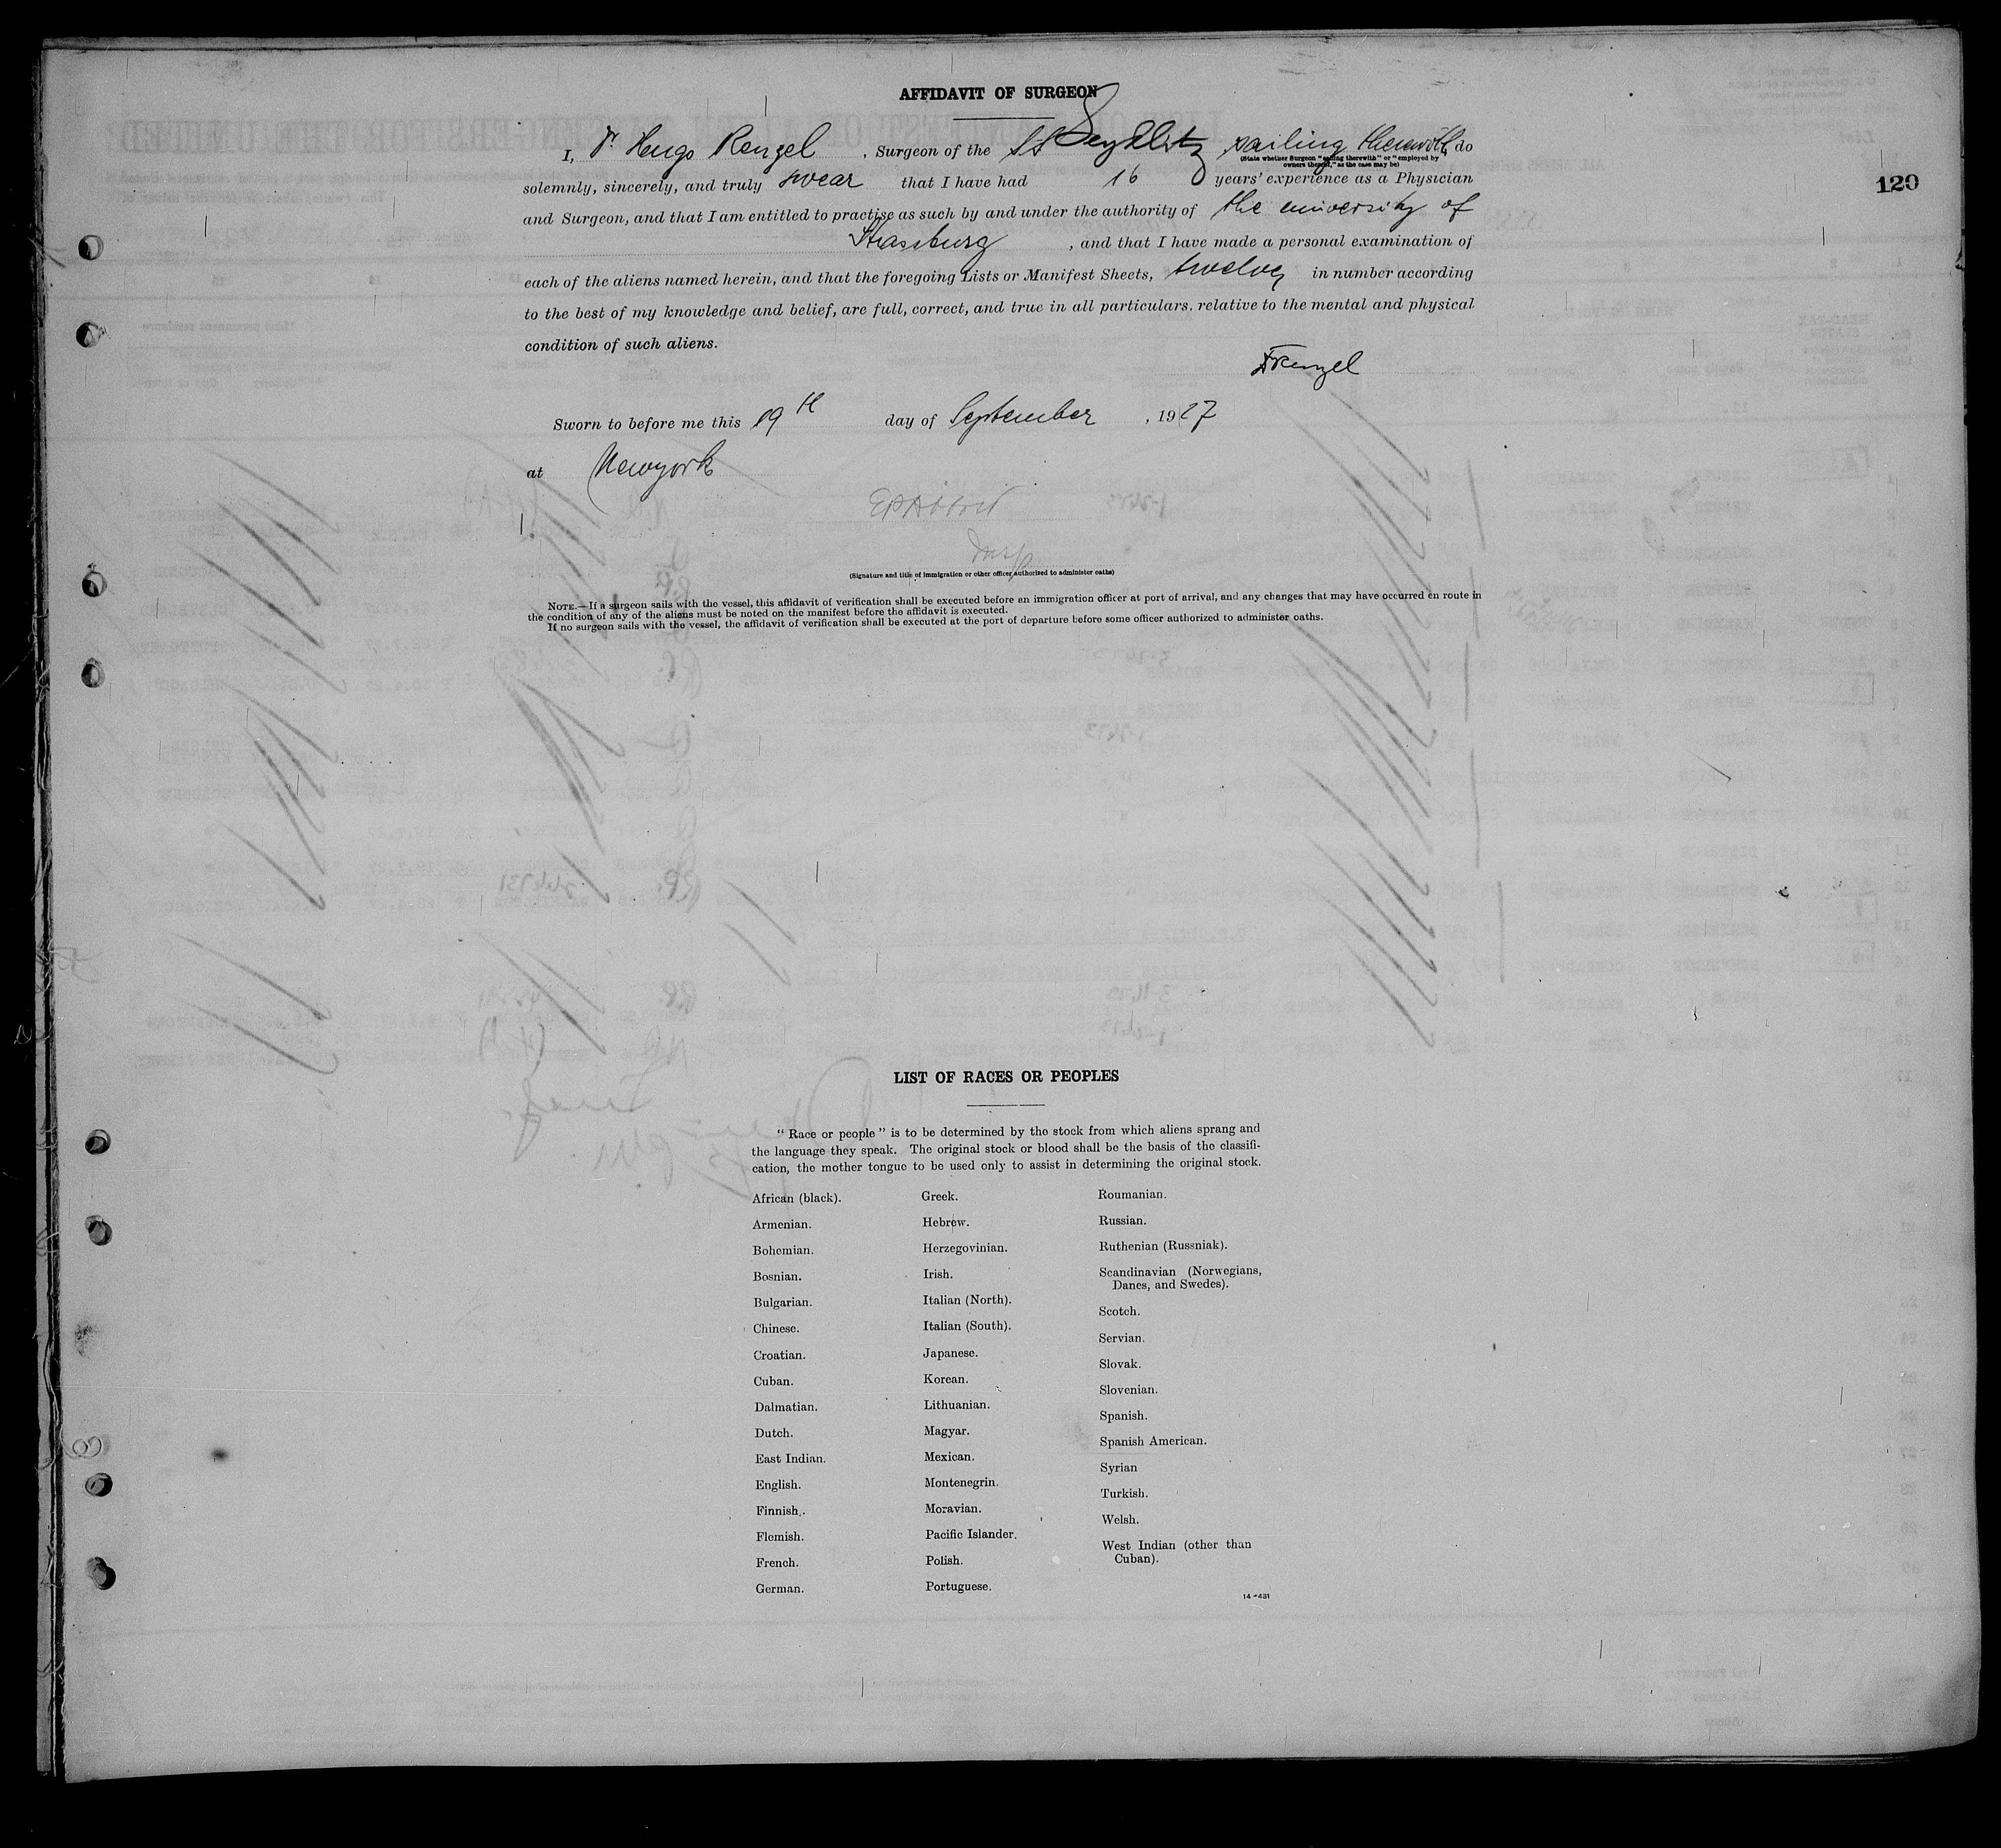 AFFIDAVIT OF SURGEON
120
I, Dr. Hugo Renzel, Surgeon of the SS Seydlitz sailing therewith, do
(State whether Surgeon "sailing therewith" or "employed by
owners thereof," as the case may be)
solemnly, sincerely, and truly swear that I have had 16 years' experience as a Physician
and Surgeon, and that I am entitled to practise as such by and under the authority of the university of
Strassburg, and that I have made a personal examination of
each of the aliens named herein, and that the foregoing Lists or Manifest Sheets, twelve in number according
to the best of my knowledge and belief, are full, correct, and true in all particulars. relative to the mental and physical
condition of such aliens.
Sworn to before me this 19th day of September, 1927
at Newyork
Insp
(Signature and title of immigration or other officer authorized to administer oaths)
NOTE.—If a surgeon sails with the vessel, this affidavit of verification shall be executed before an immigration officer at port of arrival, and any changes that may have occurred en route in
the condition of any of the aliens must be noted on the manifest before the affidavit is executed.
If no surgeon sails with the vessel, the affidavit of verification shall be executed at the port of departure before some officer authorized to administer oaths.
LIST OF RACES OR PEOPLES
"Race or people" is to be determined by the stock from which aliens sprang and
the language they speak. The original stock or blood shall be the basis of the classifi-
cation, the mother tongue to be used only to assist in determining the original stock.
African (black).
Armenian.
Bohemian.
Bosnian.
Bulgarian.
Chinese.
Croatian.
Cuban.
Dalmatian.
Dutch.
East Indian.
English.
Finnish.
Flemish.
French.
German.
Greek.
Hebrew.
Herzegovinian.
Irish.
Italian (North).
Italian (South).
Japanese.
Korean.
Lithuanian.
Magyar.
Mexican.
Montenegrin.
Moravian.
Pacific Islander.
Polish.
Portuguese.
Roumanian.
Russian.
Ruthenian (Russniak).
Scandinavian (Norwegians,
Danes, and Swedes).
Scotch.
Servian.
Slovak.
Slovenian.
Spanish.
Spanish American.
Syrian
Turkish.
Welsh.
West Indian (other than
Cuban).
14-431